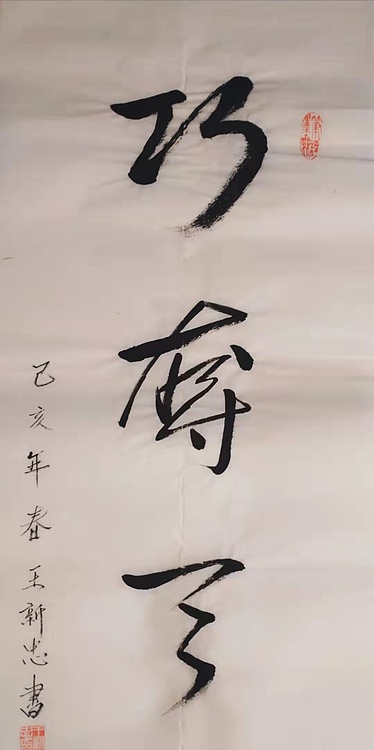 巧奪天
己亥年春王新忠書